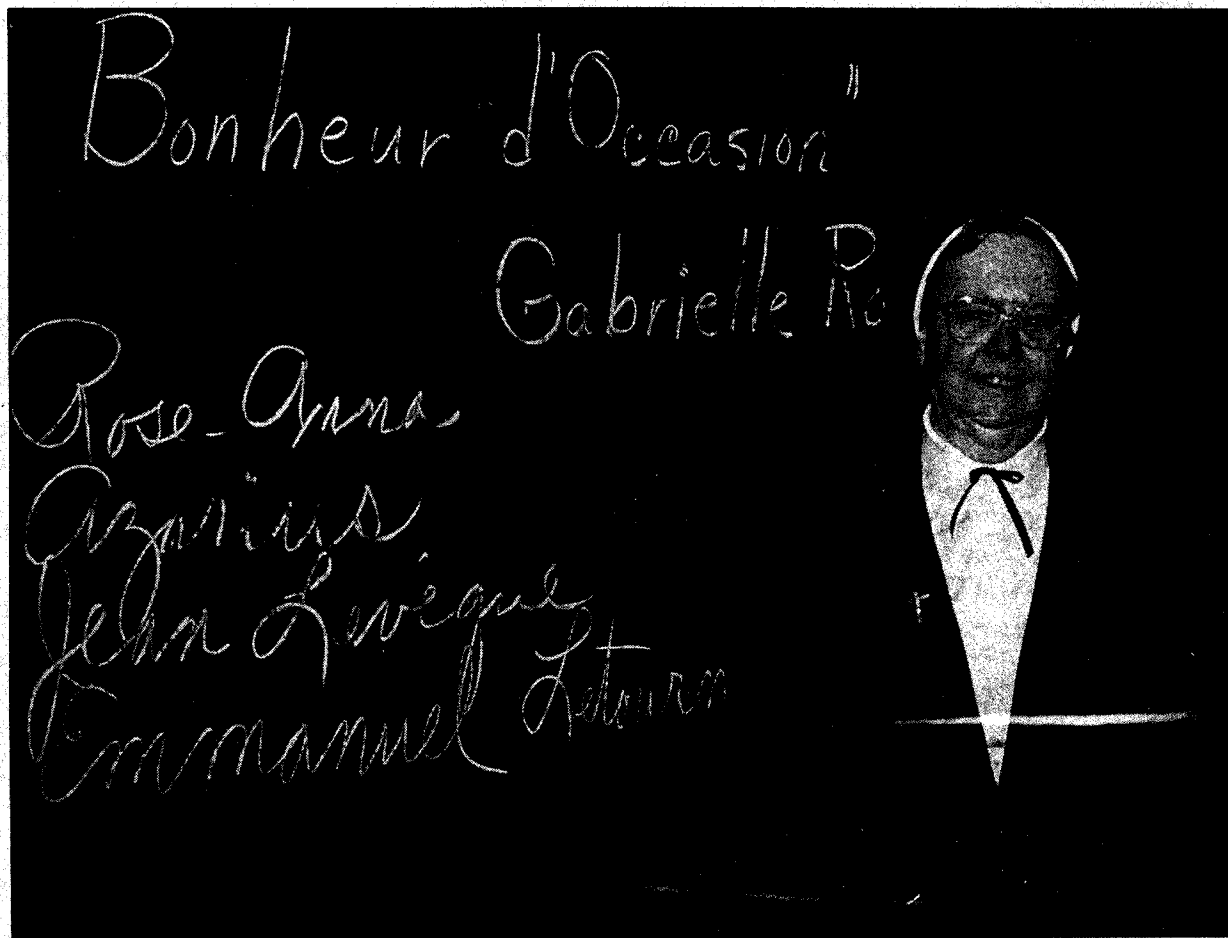 Bonheur d'Occasion"
Gabrielle Ro
Rose-Anna
Azarius
Jean Levêque
Emmanuel Letourn